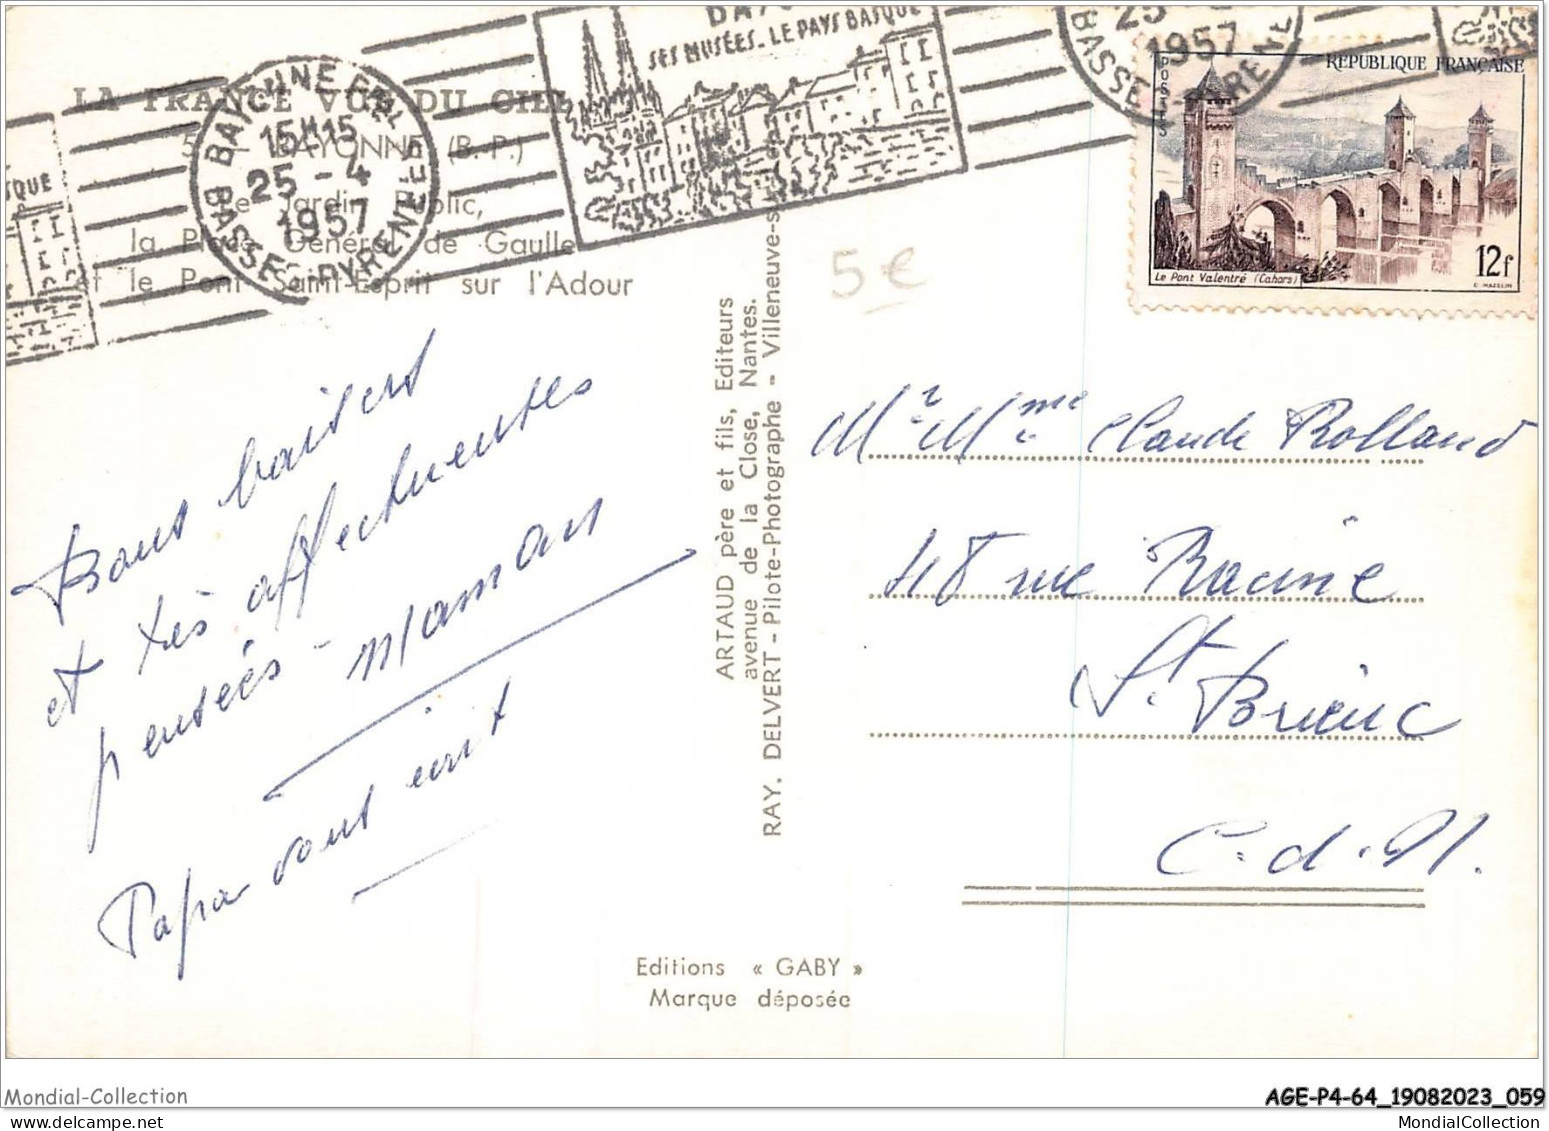 LA FRANCE VUE DU CIEL
BAYONNE (B.-P.)
Le Jardin Public,
la Place Général de Gaulle
et le Pont Saint-Esprit sur l'Adour
BAYONNE
BASSES-PYRENEES
15H15
25-4
1957
SES MUSÉES - LE PAYS BASQUE
SQUE
25
1957
BASSES
POSTES
REPUBLIQUE FRANÇAISE
Le Pont Valentré (Cahors)
12f
C. MAZELIN
5€
Bons baisers
et très affectueuses
pensées - Maman
Papa vous écrit
ARTAUD père et fils, Editeurs
avenue de la Close, Nantes.
RAY. DELVERT - Pilote-Photographe - Villeneuve-s
Mr Mme Claude Rolland
48 rue Racine
St. Brieuc
C.d.N.
Editions « GABY »
Marque déposée
Mondial-Collection
AGE-P4-64_19082023_059
MondialCollection